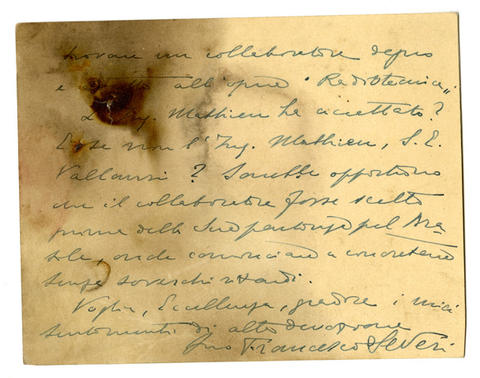 trovare un collaboratore degno
e all'opera "Radiotecnica".
L'Ing. Mathieu ha accettato?
E se non l'Ing. Mathieu, S. E.
Vallauri? Sarebbe opportuno
che il collaboratore fosse scelto
prima della Sua partenza pel Bra-
sile, onde cominciare a concretare
senza soverchi ritardi.
Voglia, Eccellenza, gradire i miei
sentimenti di alta devozione
Suo Francesco Severi